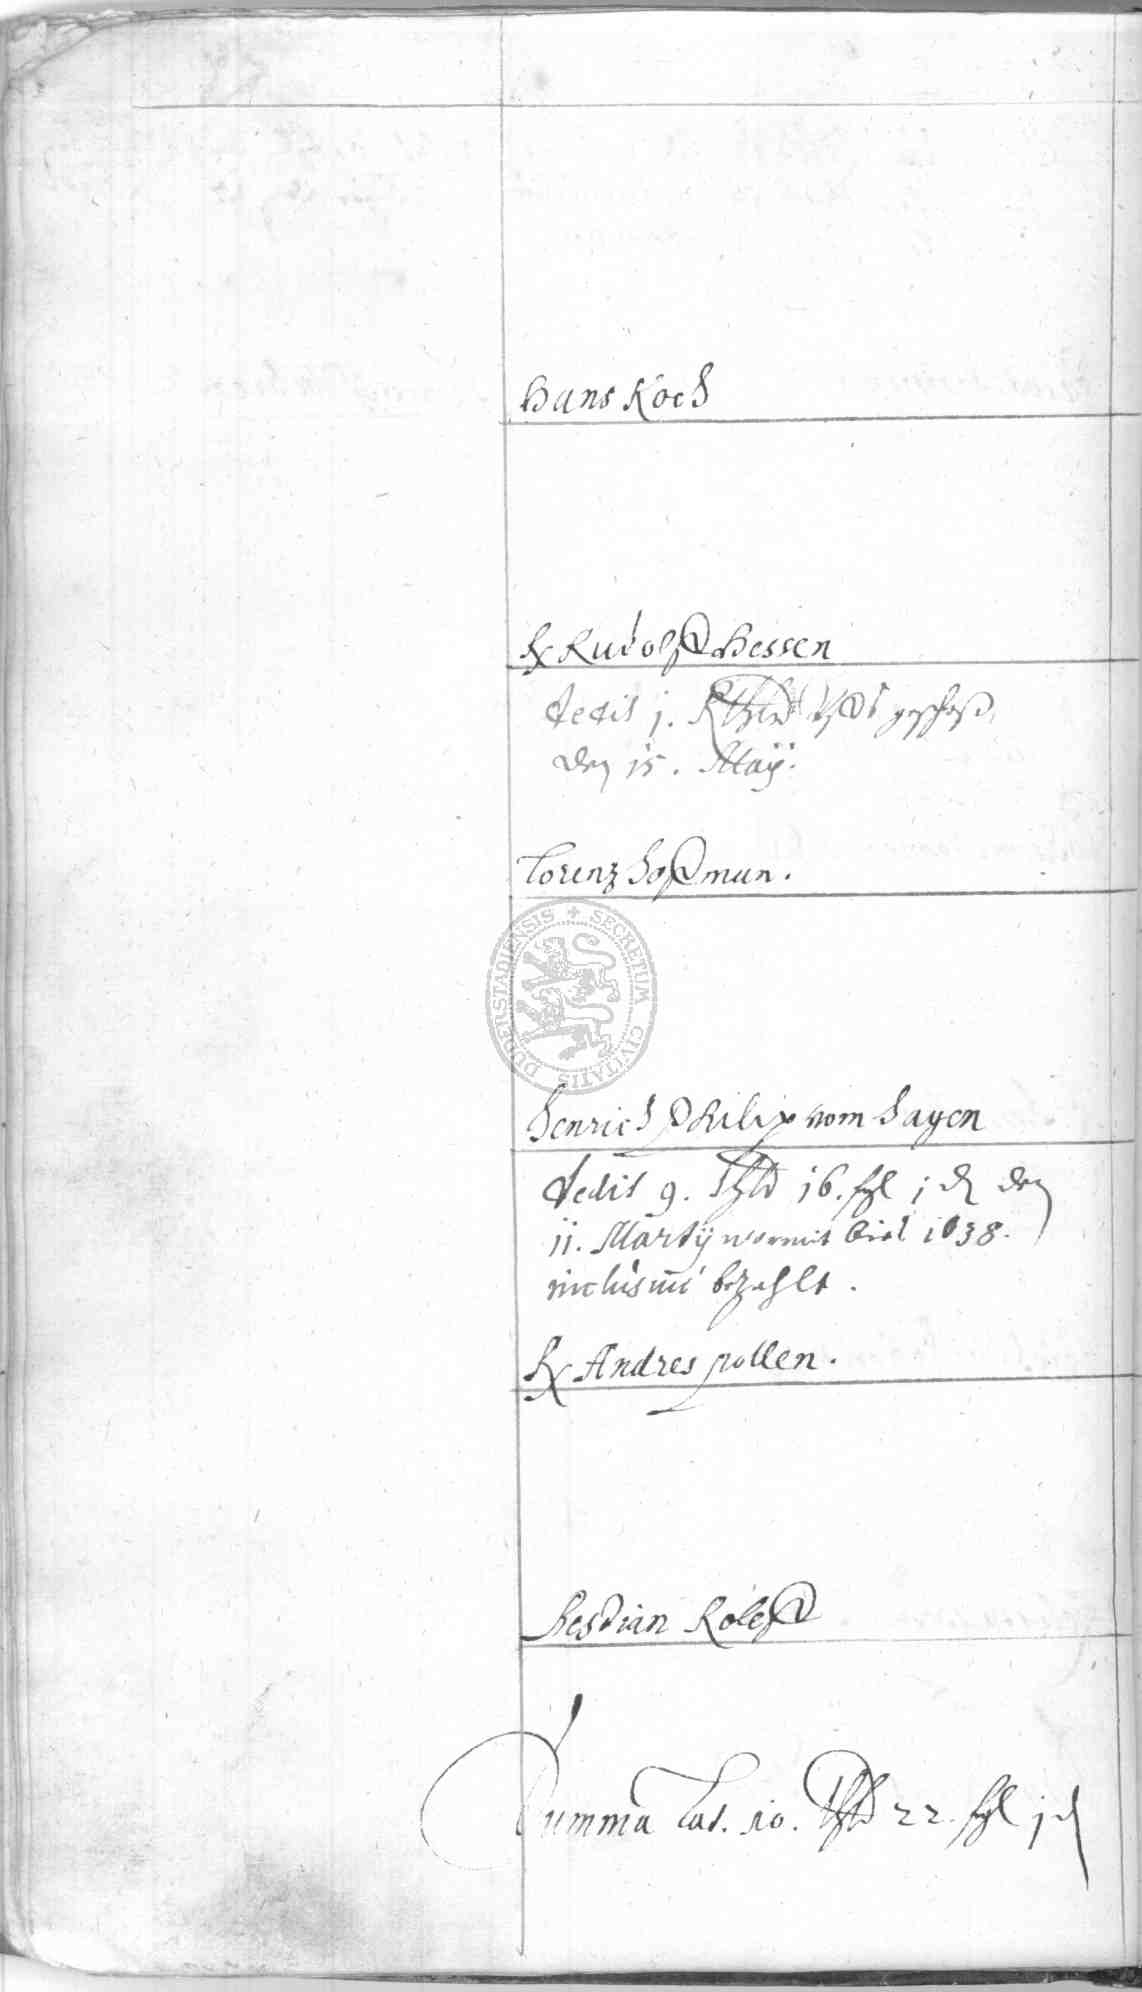 Hans Koch
Rudolff Hessen
dedit j. Rthlr geschoß
den 15. Maij.
Lorenz Hoffman.
DUDERSTADIENSIS + SECRETUM CIVITATIS
Henrich Philip vom Hagen
dedit 9. thlr 16. sgl j d den
11. Martij wormit biß 1638.
inclusive bezahlt.
Andres pollen.
Bestian Roleff
Summa Lat. 10. thlr 22. sgl j d